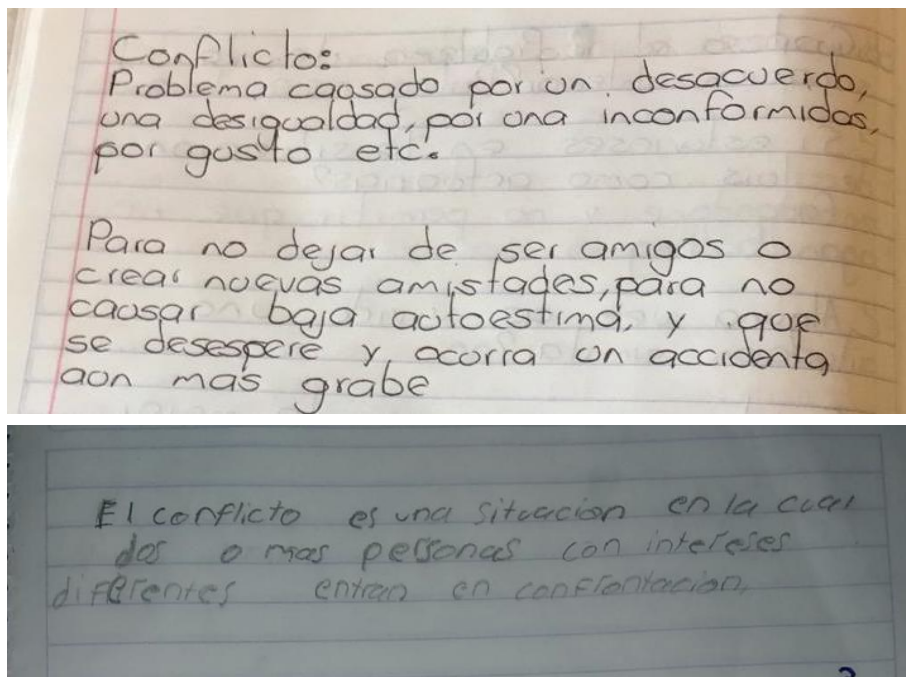 Conflicto:
Problema caosado por un desacuerdo,
una desigualdad, por una inconformidas,
por gusto etc.
Para no dejar de ser amigos o
crear nuevas amistades, para no
causar baja autoestima, y que
se desespere y ocorra un accidenta
aon mas grabe
El conflicto es una situacion en la cual
dos o mas personas con intereses
diferentes entran en confrontacion,